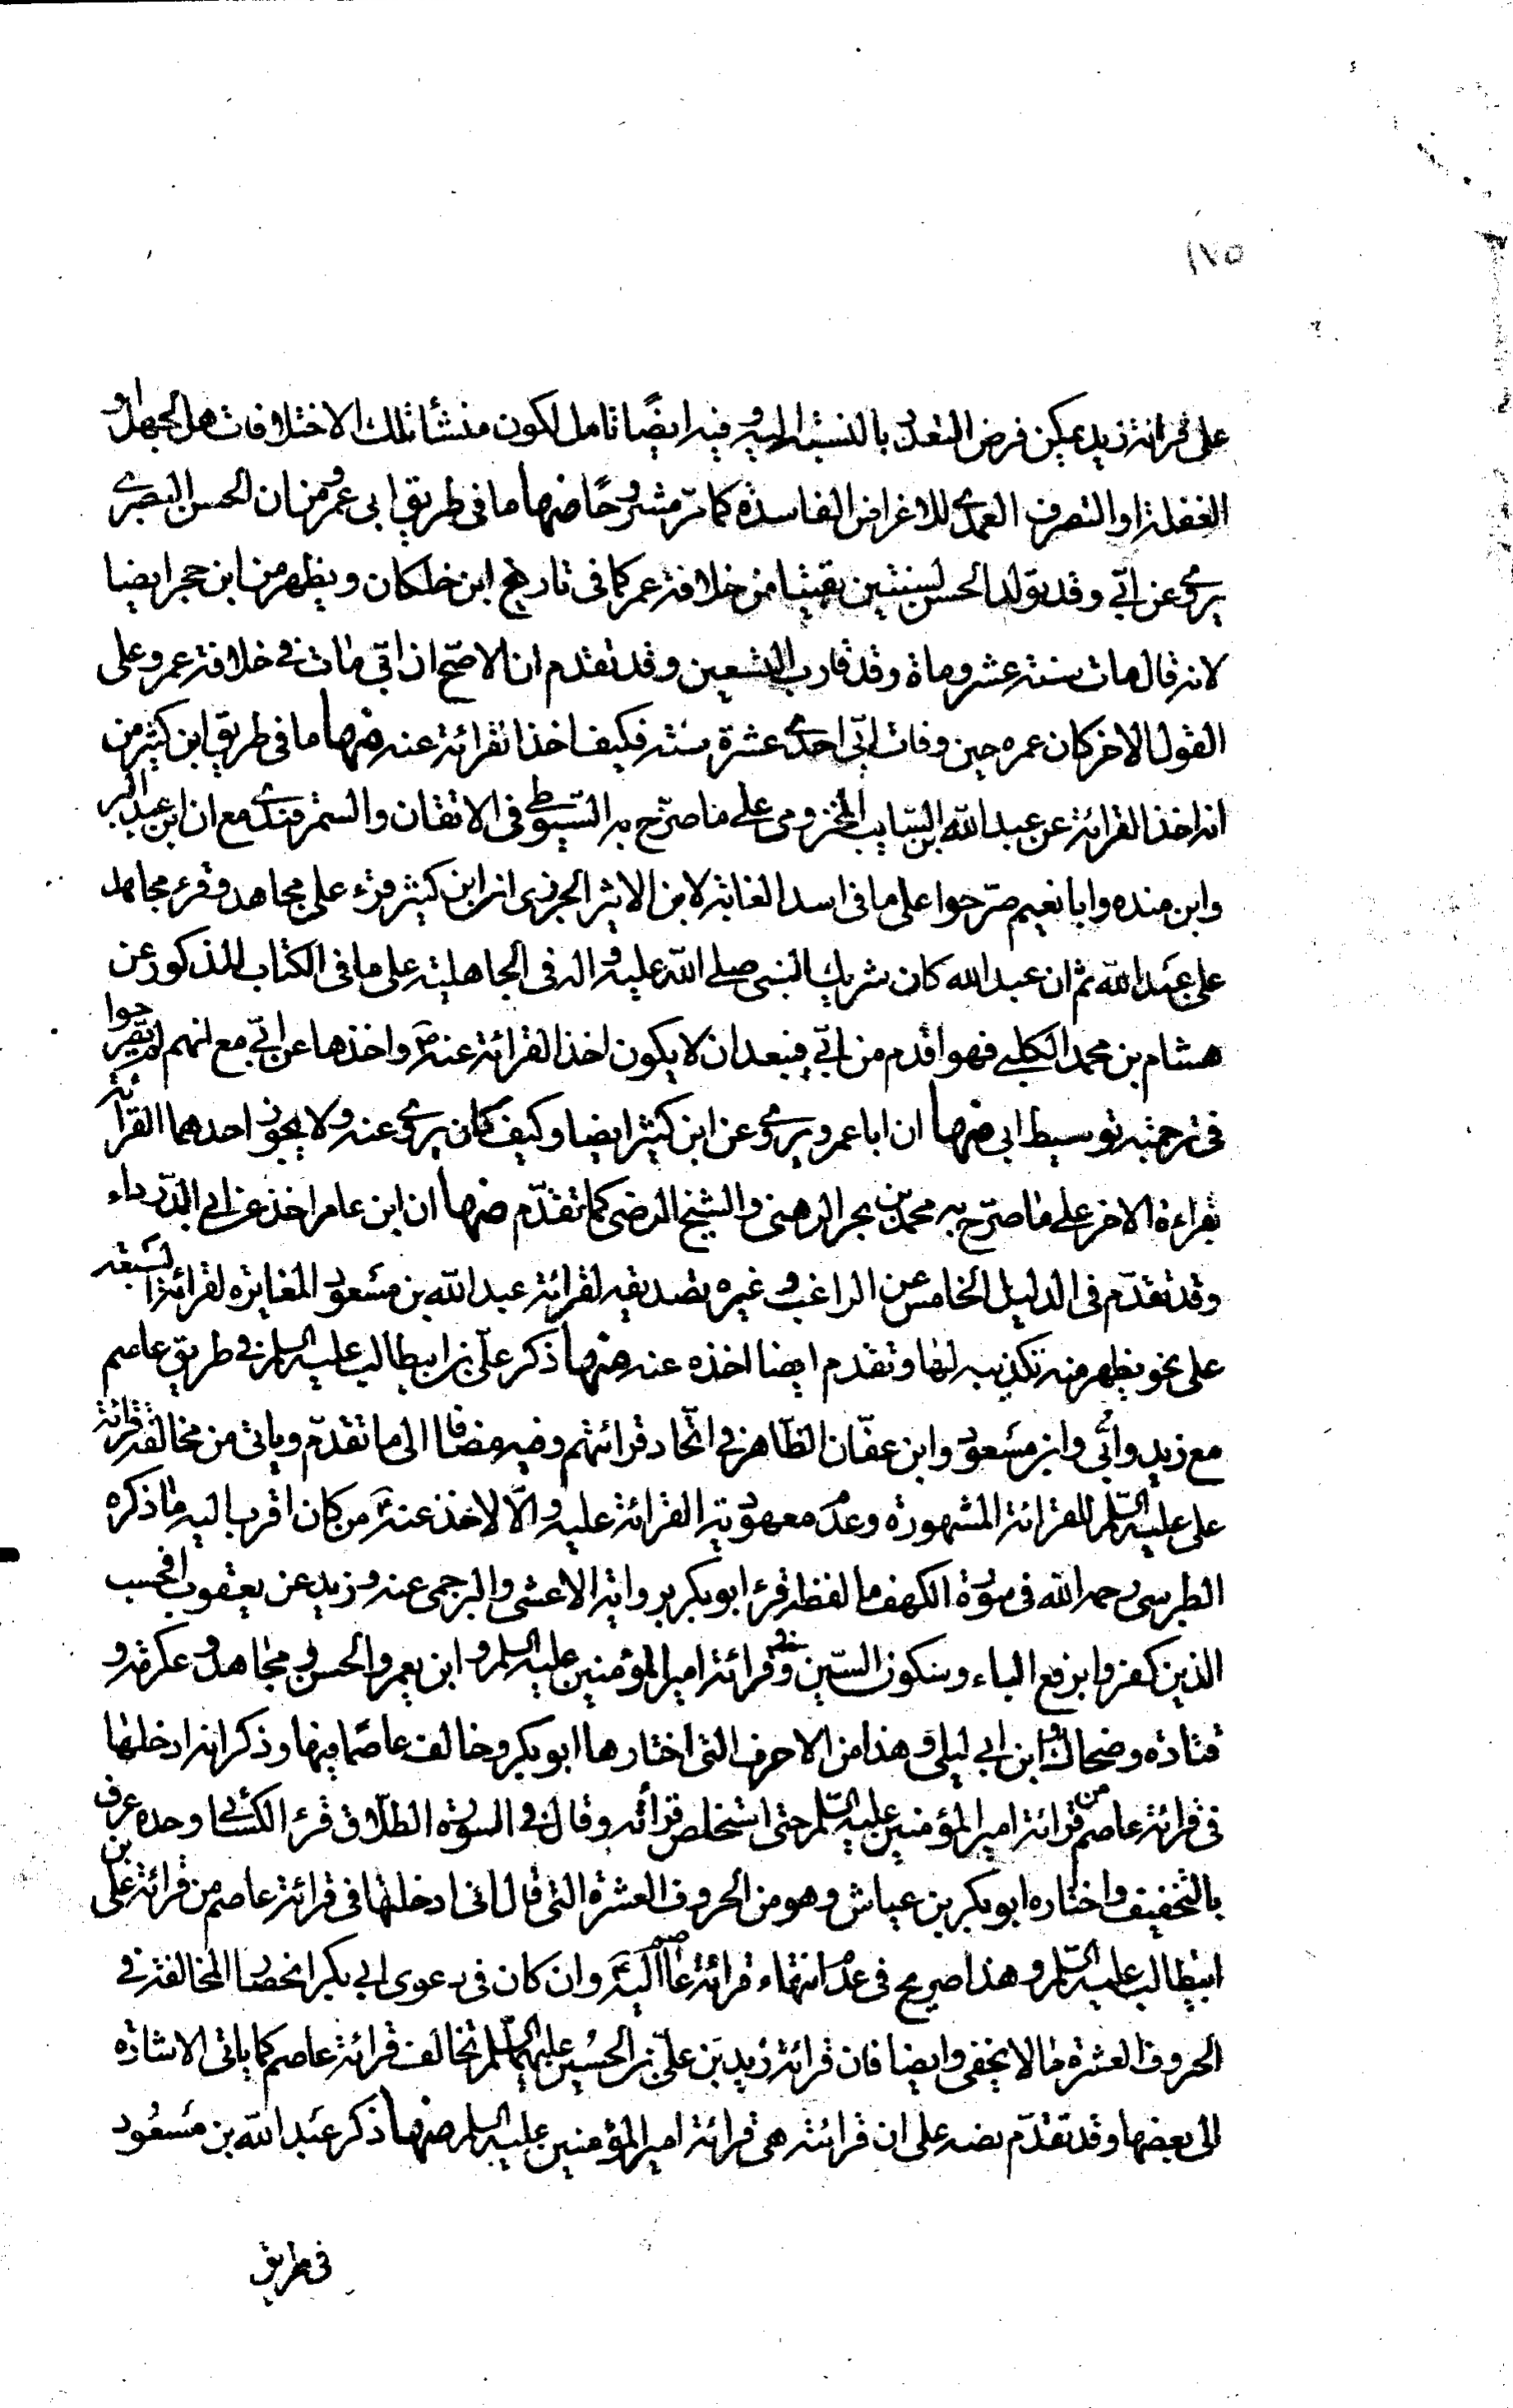 ١٧٥
على قرائة زيد يمكن فرض التعدد بالنسبة اليه وفيه ايضًا تامل لكون منشأ تلك الاختلافات هل الجهل او
الغفلة او التصرف العمدى للاغراض الفاسدة كما مرّ مشروحًا منها ما فى طريق ابى عمرو من ان الحسن البصرى
يروى عن ابّى وقد تولد الحسن لسنتين بقيتا من خلافة عمر كما فى تاريخ ابن خلكان ويظهر من ابن حجر ايضا
لانه قال مات سنة عشر وماة وقد قارب التسعين وقد تقدم ان الاصّح ان ابّى مات فى خلافة عمر وعلى
القول الاخر كان عمره حين وفات ابّى احدى عشرة سنة فكيف اخذ القرائة عنه منها ما فى طريق ابن كثير من
انه اخذ القرائة عن عبد الله بن السّايب المخزومى على ما صرّح به السّيوطى فى الاتقان والسّمرقندى مع ان ابن عبد البر
وابن منده وابا نعيم صرّحوا على ما فى اسد الغابة لابن الاثير الجزرى ان ابن كثير قرء على مجاهد وقرء مجاهد
على عبد الله ثم ان عبد الله كان شريك النبى صلى الله عليه واله فى الجاهلية على ما فى الكتاب المذكور عن
هشام بن محمد الكلبى فهو اقدم من ابّى فيبعد ان لا يكون اخذ القرائة عنه ص واخذها عن ابّى مع انهم لم يصرحوا
فى ترجمته توسيط ابى منها ان ابا عمرو يروى عن ابن كثير ايضا وكيف كان يروى عنه ولا يجوز احدهما القرائة
بقراءة الاخر على ما صرّح به محمد بن بحر الرهنى والشيخ الرضى كما تقدّم منها ان ابن عامر اخذ عن ابى الدّرداء
وقد تقدّم فى الدليل الخامس عن الراغب وغيره تصديقه لقرائة عبد الله بن مسعود المغايرة لقرائة السبعة
على نحو يظهر منه تكذيبه لها وتقدم ايضا اخذه عنه منها ذكر علّى بن ابيطالب عليه السلم فى طريق عاصم
مع زيد وابّى وابن مسعود وابن عفّان الظّاهر فى اتّحاد قرائتهم وفيه مضافا الى ما تقدّم وياتى من مخالفة قرائة
على عليه السّلم للقرائة المشهورة وعدم معهودية القرائة عليه والّا لاخذ عنه ع من كان اقرب اليه ما ذكره
الطبرسى رحمه الله فى سورة الكهف ما لفظه قرء ابو بكر برواية الاعشى والبرجمى عنه وزيد عن يعقوب افحسب
الذين كفروا برفع الباء وسكون السّين وهو قرائة امير المؤمنين عليه السلم وابن يعمر والحسن ومجاهد وعكرمة و
قتادة وضحاك وابن ابى ليلى وهذا من الاحرف التى اختارها ابو بكر وخالف عاصمًا فيها وذكر انه ادخلها
فى قرائة عاصم من قرائة امير المؤمنين عليه السّلم حتى استخلص قرائته وقال فى السورة الطّلاق قرء الكسائى وحده عرف
بالتخفيف واختاره ابو بكر بن عياش وهو من الحروف العشرة التى قال انى ادخلتها فى قرائة عاصم من قرائة على بن
ابيطالب عليه السّلم وهذا صريح فى عدم انتهاء قرائة عاصم اليه ع وان كان فى دعوى ابى بكر انحصار المخالفة فى
الحروف العشرة ما لا يخفى وايضا فان قرائة زيد بن علّى بن الحسين عليهما السّلم تخالف قرائة عاصم كما ياتى الاشارة
الى بعضها وقد تقدّم نصه على ان قرائته هى قرائة امير المؤمنين عليه السلم منها ذكر عبد الله بن مسعود
فى طريق